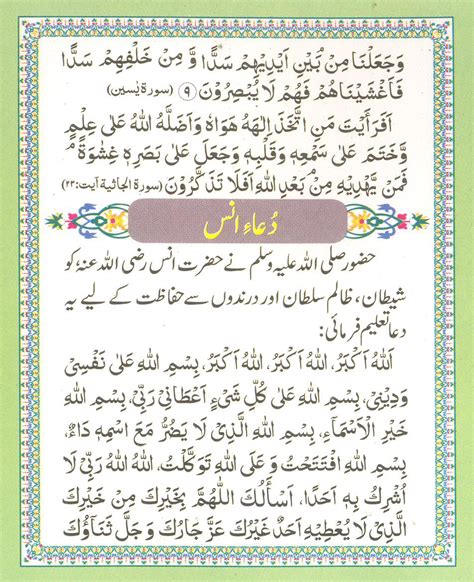 وَجَعَلْنَا مِنْۢ بَيْنِ اَيْدِيْهِمْ سَدًّا وَّ مِنْ خَلْفِهِمْ سَدًّا
فَاَغْشَيْنَاهُمْ فَهُمْ لَا يُبْصِرُوْنَ ۹ (سورة يٰسين)
اَفَرَاَيْتَ مَنِ اتَّخَذَ اِلٰهَهُ هَوَاهُ وَاَضَلَّهُ اللهُ عَلٰى عِلْمٍ
وَّخَتَمَ عَلٰى سَمْعِهٖ وَقَلْبِهٖ وَجَعَلَ عَلٰى بَصَرِهٖ غِشٰوَةً
فَمَنْ يَّهْدِيْهِ مِنْۢ بَعْدِ اللهِ اَفَلَا تَذَكَّرُوْنَ (سورة الجاثية آيت:۲۳)
دُعاءِ انس
حضور صلی اللہ علیہ وسلم نے حضرت انس رضی اللہ عنہ، کو
شیطان، ظالم سلطان اور درندوں سے حفاظت کے لیے یہ
دعا تعلیم فرمائی:
اَللهُ اَكْبَرُ، اَللهُ اَكْبَرُ، اَللهُ اَكْبَرُ، بِسْمِ اللهِ عَلٰى نَفْسِيْ
وَدِيْنِيْ، بِسْمِ اللهِ عَلٰى كُلِّ شَيْءٍ اَعْطَانِيْ رَبِّيْ، بِسْمِ اللهِ
خَيْرِ الْاَسْمَآءِ، بِسْمِ اللهِ الَّذِيْ لَا يَضُرُّ مَعَ اسْمِهٖ دَآءٌ،
بِسْمِ اللهِ افْتَتَحْتُ وَ عَلَى اللهِ تَوَكَّلْتُ، اَللهُ اَللهُ رَبِّيْ لَا
اُشْرِكُ بِهٖ اَحَدًا، اَسْأَلُكَ اللّٰهُمَّ بِخَيْرِكَ مِنْ خَيْرِكَ
الَّذِيْ لَا يُعْطِيْهِ اَحَدٌ غَيْرُكَ عَزَّ جَارُكَ وَ جَلَّ ثَنَاؤُكَ